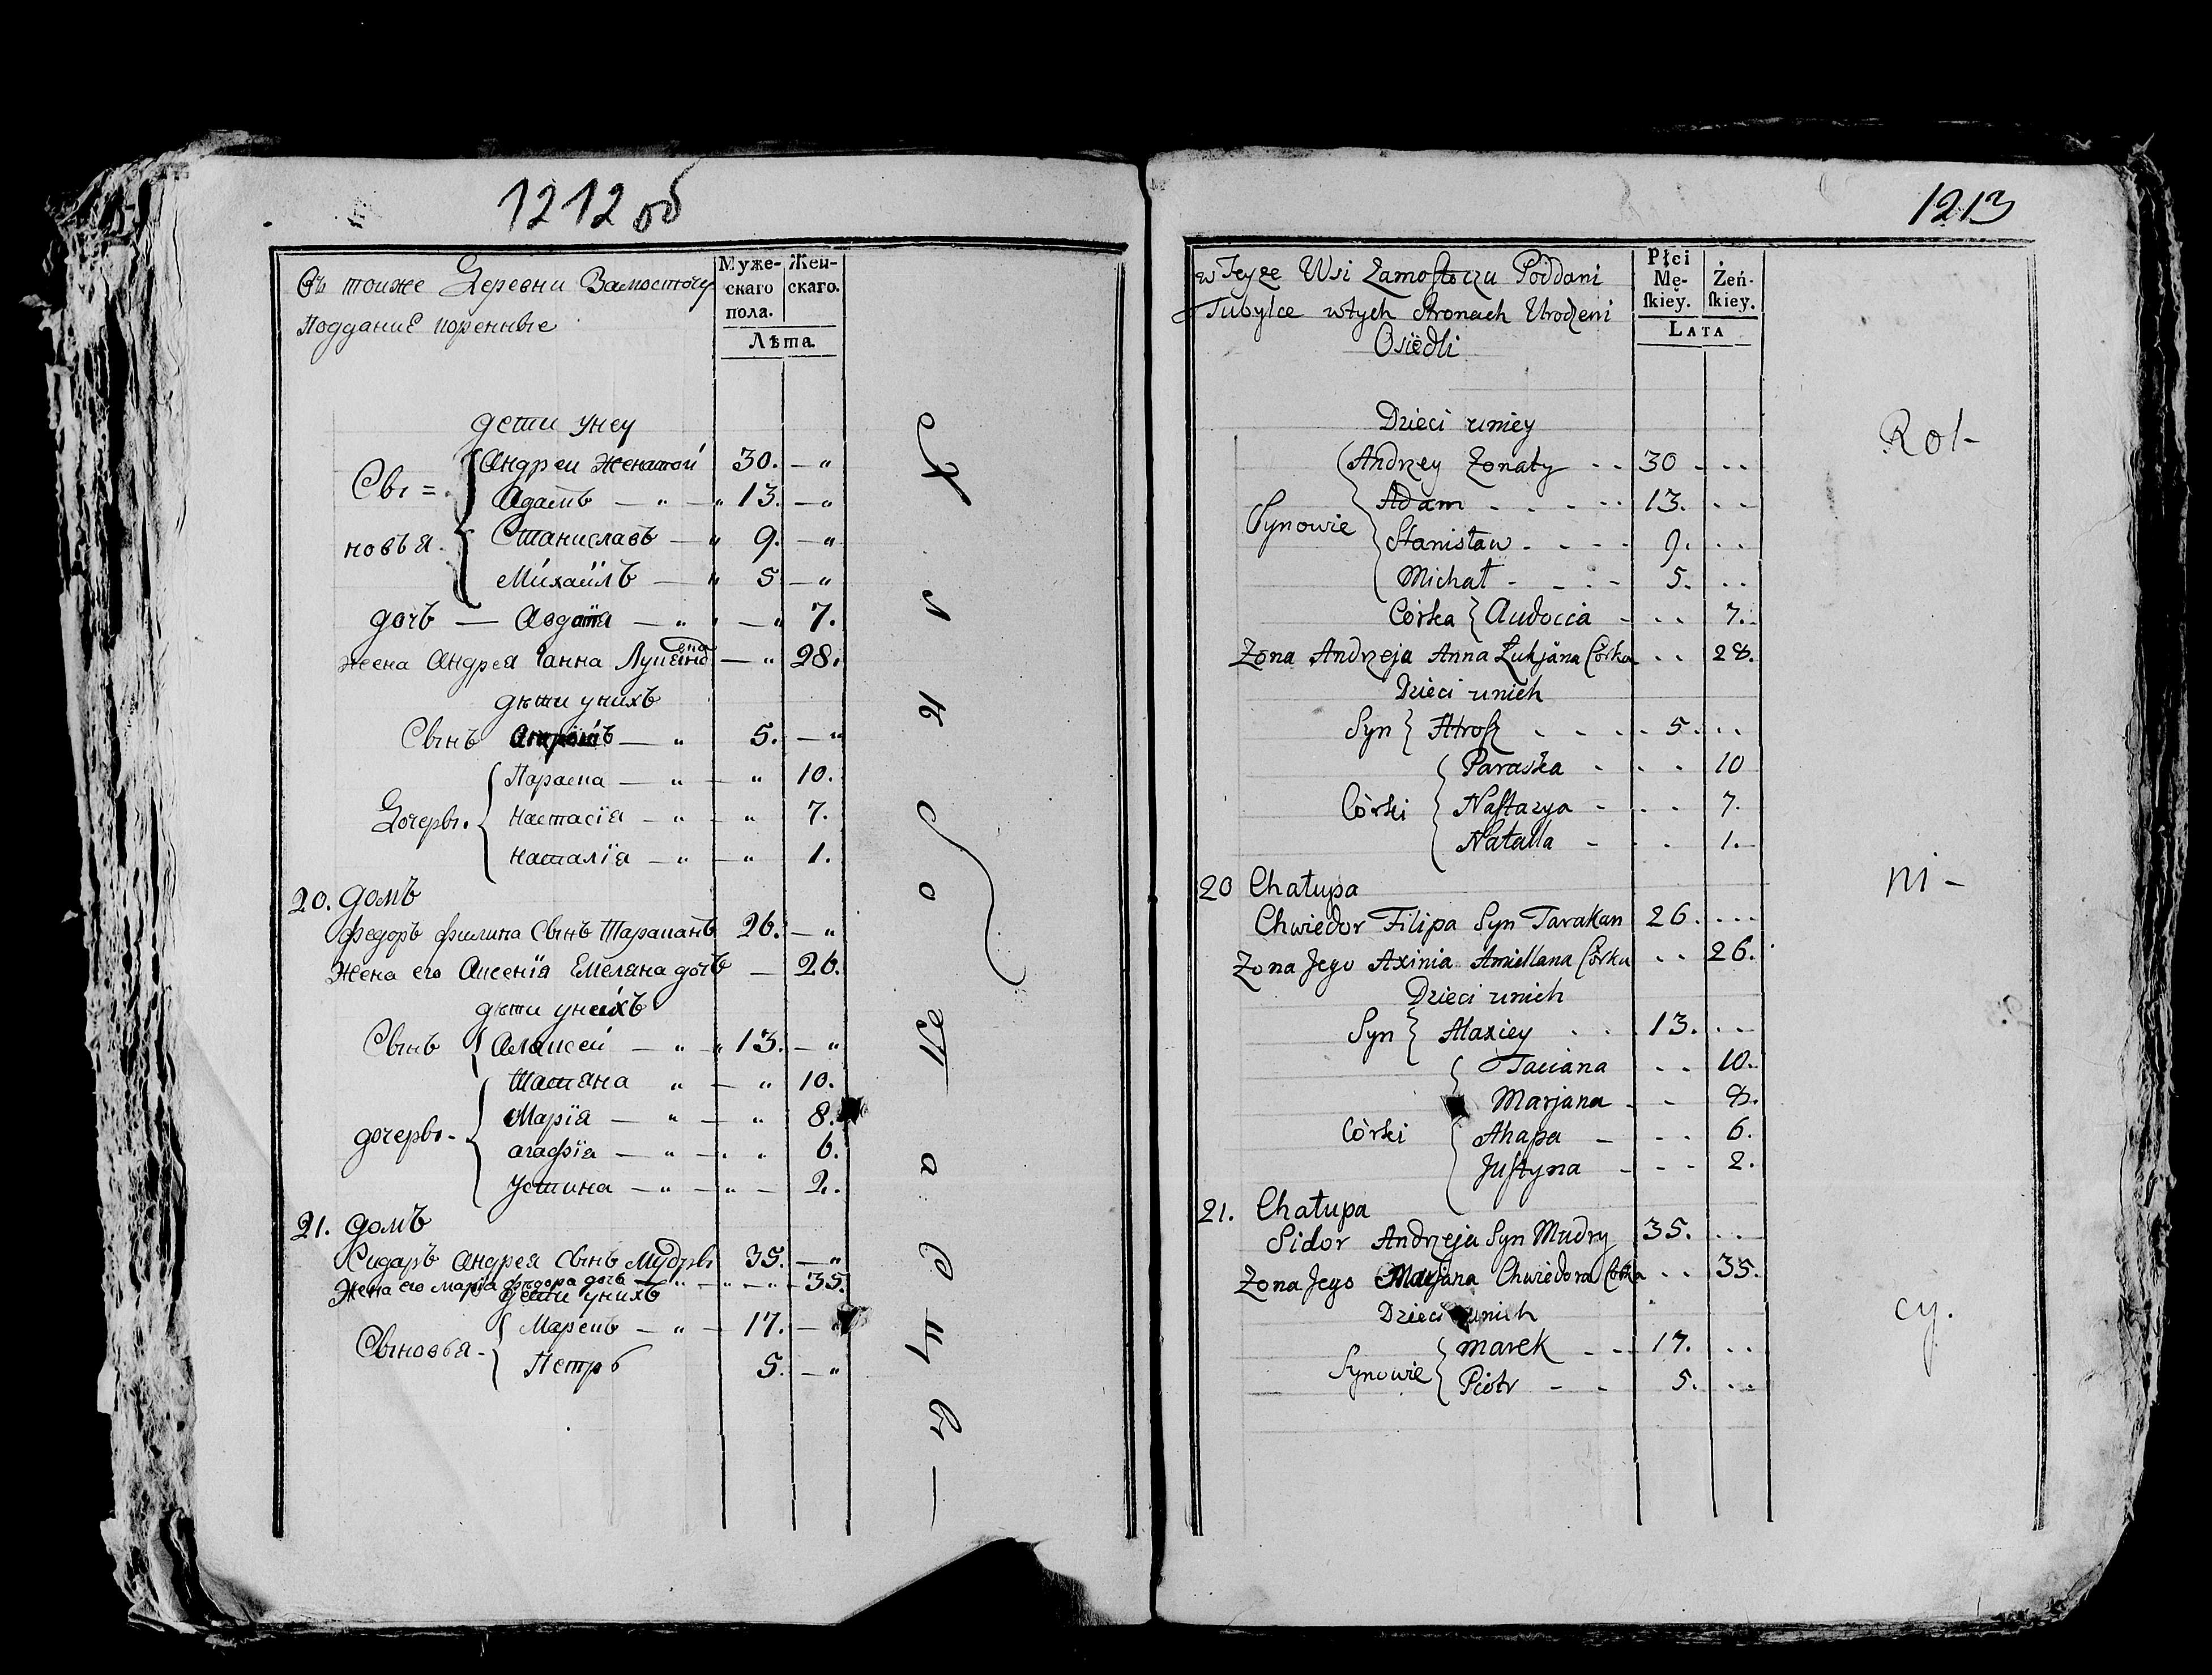 1212 об
Въ тоиже Деревни Замосточу
Поддание коренные
Муже-
скаго
пола.
Жен-
скаго.
Лѣта.
дети унеу
Сы=
новья.
Андреи женатои 30. — „
Адамъ — „ — „ 13. — „
Станиславъ — „ 9. — „
Михайлъ — „ 5 — „
дочъ — — „ — „ 7.
жена Андрея Ганна — „ 28.
дѣти унихъ
Сынъ — „ 5. — „
Дочеры.
Параска — „ — „ 10.
Настасія — „ — „ 7.
Наталія — „ — „ 1.
20. домъ
Федоръ Филипа Сынъ Тараканъ 26. — „
Жена его Аксенія Емеляна дочъ — 26.
дѣти унихъ
Сынъ Алаксеи — „ — „ 13. — „
дочеры-
Татяна „ — „ 10.
Марія — „ — „ 8.
агафія — „ — „ 6.
Устина — „ — „ — 2.
21. домъ
Сидаръ Андрея Сынъ Мудры 35. — „
Жена его Марія Фѣдора дочъ — „ — „ — „ — 35.
дети унихъ
Сыновья-
Марекъ — „ — 17. — „
Петръ 5. — „
1213
w Teyże Wsi Zamostoczu Poddani
Tubylce wtych Stronach Urodzeni
Osiedli
Płci
Mę-
skiey.
Żeń-
skiey.
LATA
Dzieci uniey
Synowie
Andrzey Zonaty 30
Adam 13.
Stanisław 9.
Michał 5.
Córka Audoccia 7.
Zona Andrzeja Anna Łukjana Córka 28.
Dzieci unich
Syn 5.
Córki
Paraska 10
Nastazya 7.
Natalia 1.
20 Chałupa
Chwiedor Filipa Syn Tarakan 26.
Zona Jego Axinia Amiellana Córka 26.
Dzieci unich
Syn Alaxiey 13.
Córki
Taciana 10.
Marjana 8.
Ahapa 6.
Justyna 2.
21. Chałupa
Sidor Andrzeja Syn Mudry 35.
Zona Jego Marjana Chwiedora Córka 35.
Dzieci unich
Synowie
Marek 17.
Piotr 5.
Rol-
ni-
cy.